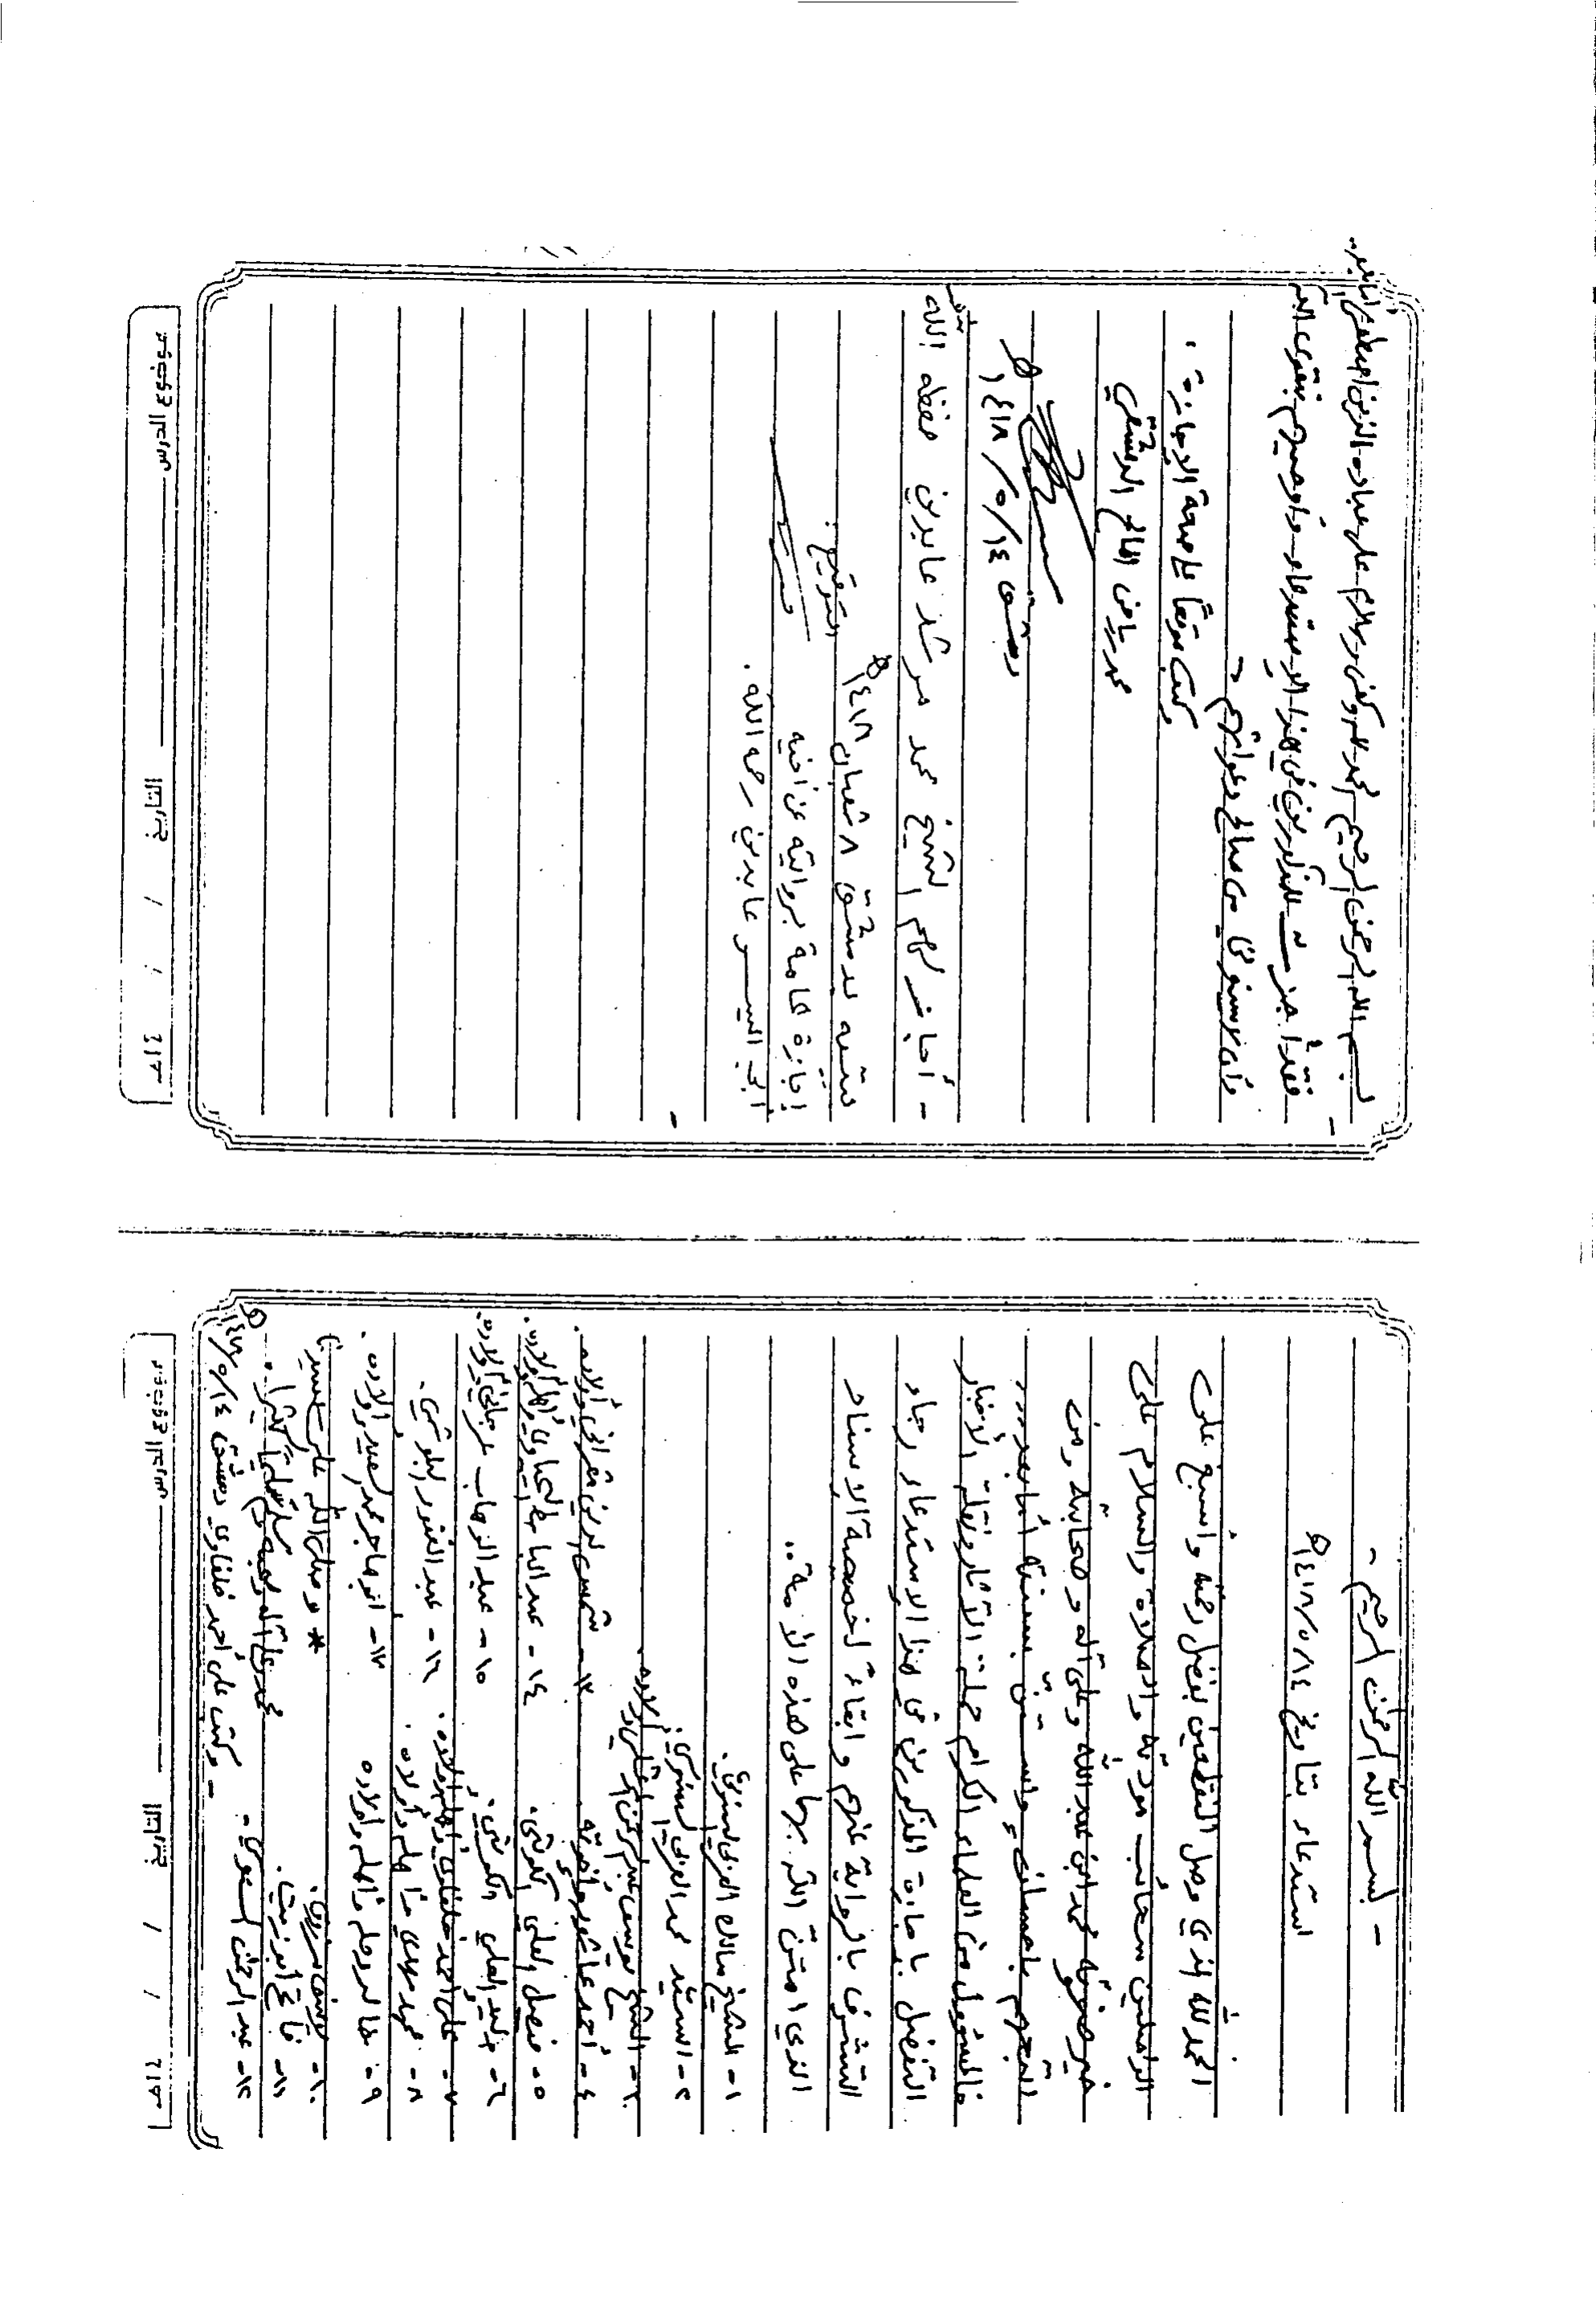 - بسم الله الرحمن الرحيم -
استدعاء بتاريخ ١٤١٨/٥/١٤ هـ
الحمد لله الذي وصل المنقطعين بفضل رحمته وأسبغ على
الواصلين سحائب مودته والصلاة والسلام على
خير خلقه محمد ابن عبد الله وعلى آله وصحابته ومن
تبعهم بإحسان واستن بسنته أما بعد ..
فالمسؤول من العلماء الكرام حملة الآثار ونقلة الأخبار
التفضل بإجازة المذكورين في هذا الاستدعاء رجاء
التشرف بالرواية عنهم وابقاءً لخصيصة الإسناد
الذي امتن الله بها على هذه الأمة ..
١- الشيخ مالك العربي السنوسي .
٢- السيد محمد العربي السنوسي .
٣- الشيخ يوسف
٤- أحمد عاشور وإخوته .
٥- فيصل العلي الكويتي .
٦- وليد العلي الكويتي .
٧- علي أحمد حلفاوي وأهله وأولاده .
٨- محمد مهدي وأهله وأولاده .
٩- خالد وأهله وأولاده
١٠- يوسف مرزوق .
١١- فاتح
١٢- عبد الرحمن السعودي -
١٣- شمس الدين وأولاده .
١٤- عبد الباسط وأهله وأولاده .
١٥- عبد الوهاب وأولاده .
١٦- عبد الغفور البلوشي .
١٧- محمد سعيد وأولاده .
* وصلى الله على سيدنا
محمد وعلى آله وصحبه وسلم تسليماً كثيراً .
- وكتب علي أحمد حلفاوي دمشق ١٤١٨/٥/١٤ هـ
الصف
التاريخ / /
موضوع الدرس
- بسم الله الرحمن الرحيم الحمد لله وكفى وسلام على عباده الذين اصطفى أما بعد ..
فقد أجزت للمذكورين في هذا الاستدعاء وأوصيهم بتقوى الله
وأن لا ينسوني من صالح دعواتهم -
وكتب موقعاً على صحة الإجازة ،
محمد رياض المالح الدمشقي
دمشق ١٤١٨/٥/١٤ هـ
- أجاز لهم الشيخ محمد مرشد عابدين حفظه الله
بدمشق ٨ شعبان ١٤١٨ هـ
إجازة عامة بروايته عن أخيه
أبي اليسر عابدين رحمه الله .
التوقيع :
الصف
التاريخ / /
موضوع الدرس